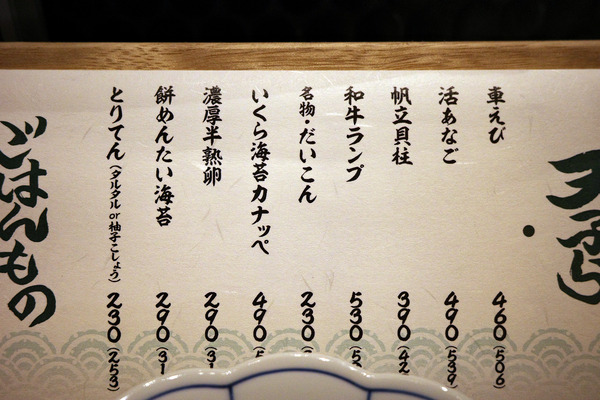 天ぷら
車えび 460(506)
活あなご 490(539
帆立貝柱 390(42
和牛ランプ 530(5
名物・だいこん 230(
いくら海苔カナッペ 490(5
濃厚半熟卵 290(31
餅めんたい海苔 290(31
とりてん(タルタルor柚子こしょう) 230(253)
ごはんもの